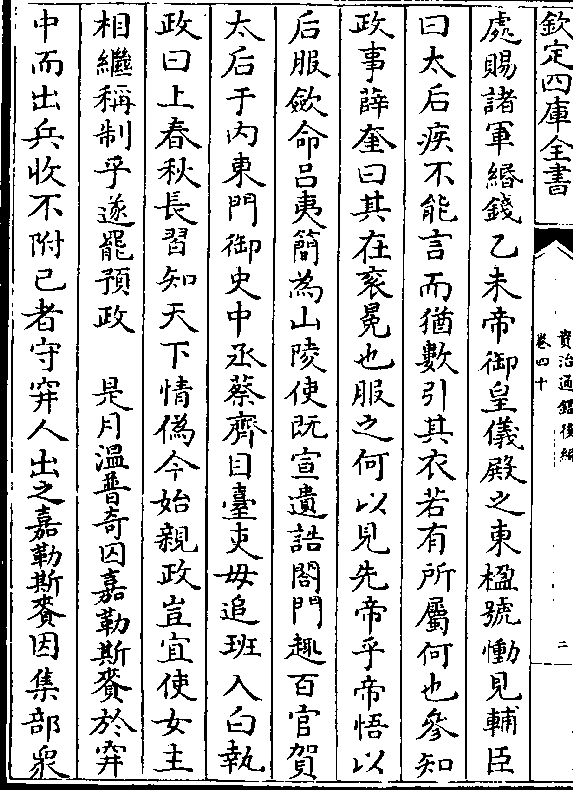 欽定四庫全書
資治通鑑後編
卷四十
二
處賜諸軍緡錢乙未帝御皇儀殿之東楹號慟見輔臣
曰太后疾不能言而猶數引其衣若有所屬何也參知
政事薛奎曰其在衮冕也服之何以見先帝乎帝悟以
后服斂命吕夷簡為山陵使既宣遺誥閤門趣百官賀
太后于内東門御史中丞蔡齊目臺吏毋追班入白執
政曰上春秋長習知天下情偽今始親政豈宜使女主
相繼稱制乎遂罷預政　是月温普奇囚嘉勒斯賚於穽
中而出兵收不附已者守穽人出之嘉勒斯賚因集部衆